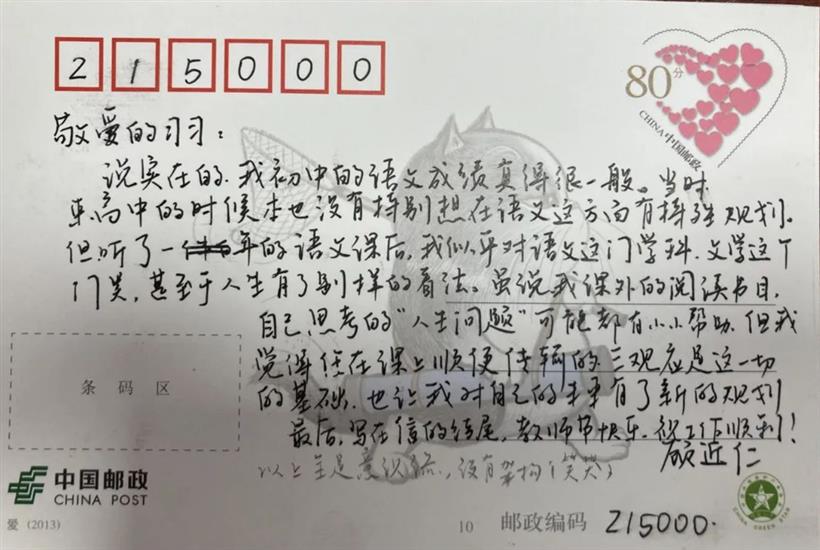 215000
80分
CHINA 中国邮政
敬爱的习习：
说实在的，我初中的语文成绩真得很一般。当时
来高中的时候本也没有特别想在语文这方面有特殊规划。
但听了一年的语文课后，我似乎对语文这门学科，文学这个
门类，甚至于人生有了别样的看法。虽说我课外的阅读书目，
自己思考的“人生问题”可能都有小小帮助，但我
觉得住在课上顺便传输的三观应是这一切
的基础，也让我对自己的未来有了新的规划
最后，写在信的结尾，教师节快乐，祝工作顺利！
顾近仁
以上全是意识流，没有架构（笑哭）
条码区
中国邮政
CHINA POST
爱 (2013)
10
邮政编码 215000.
CHINA GREEN STAR